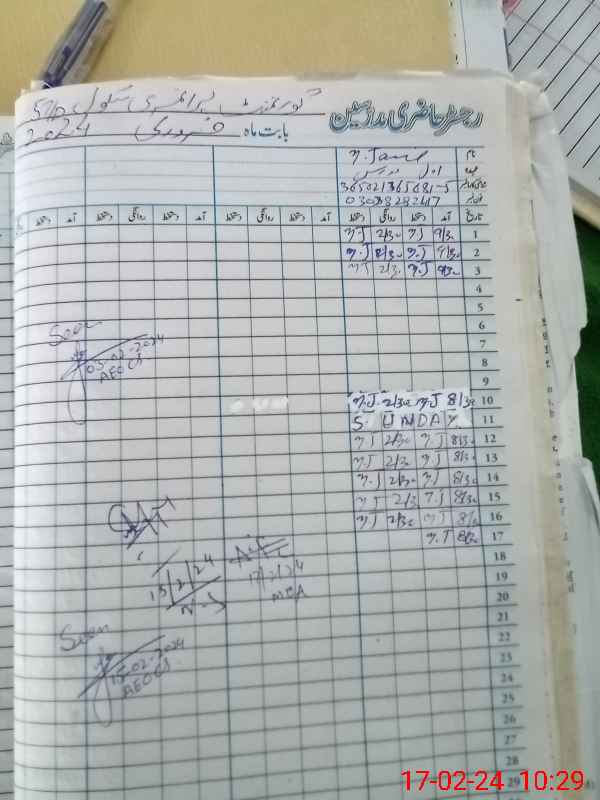 رجسٹر حاضری مدرسین گورنمنٹ پرائمری سکول
بابت ماہ فروری 2024
نام M. Jamil
عہدہ
03038282417
تاریخ آمد دستخط روانگی دستخط آمد دستخط روانگی دستخط آمد دستخط روانگی دستخط آمد دستخط
1 M.J 2/30 M.J
2 M.J 2/30 M.J
3 M.J 2/30 M.J
4
5
6
7
8
9
10 M.J 2/30 M.J 8/30
11 SUNDAY
12 M.J 2/30 M.J 8/30
13 M.J 2/30 M.J 8/30
14 M.J 2/30 M.J 8/30
15 M.J 2/30 M.J 8/30
16 M.J 2/30 M.J 8/30
17 M.J 8/30
18
19
20
21
22
23
24
25
26
27
28
29
Seen
05-02-2024
AEO
15/2/24
17/2/24
MEA
Seen
15-02-2024
AEO
17-02-24 10:29